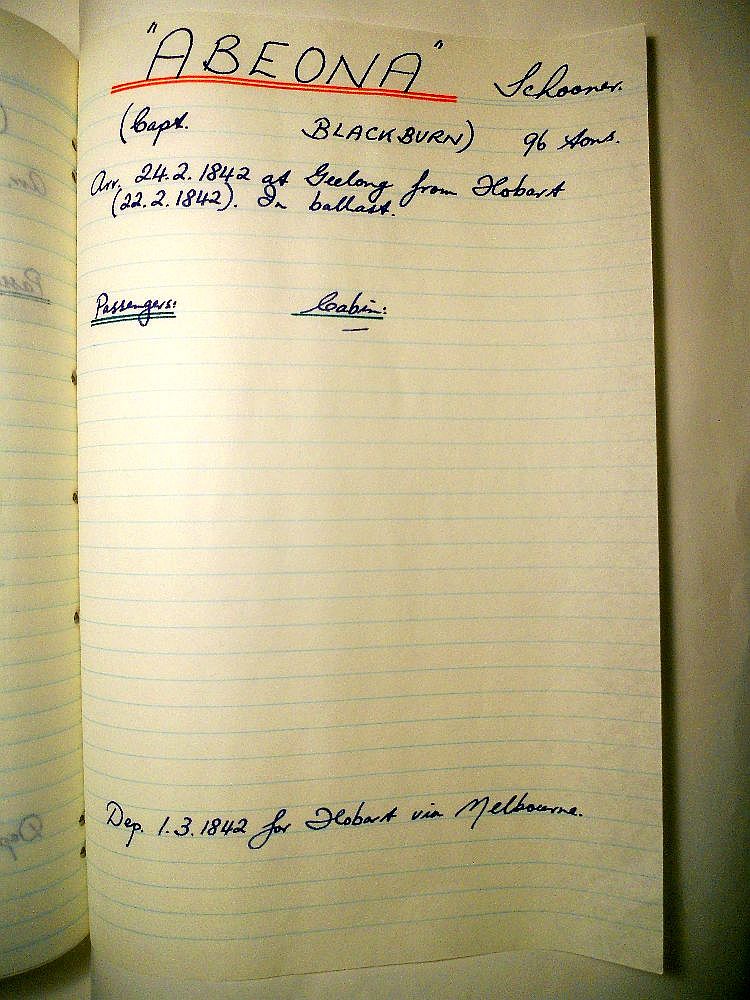 "ABEONA" Schooner.
(Capt. BLACKBURN) 96 tons.
Arr. 24.2.1842 at Geelong from Hobart
(22.2.1842). In ballast.
Passengers: Cabin:
—
Dep. 1.3.1842 for Hobart via Melbourne.